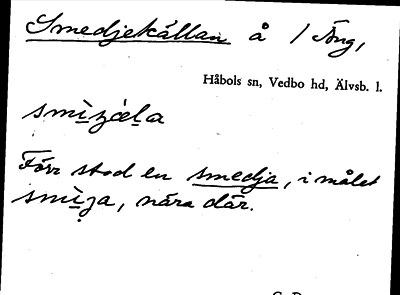 Smedjekällan å / Äng,
Håbols sn, Vedbo hd, Älvsb. l.
Förr stod en smedja, i målet
nära där.